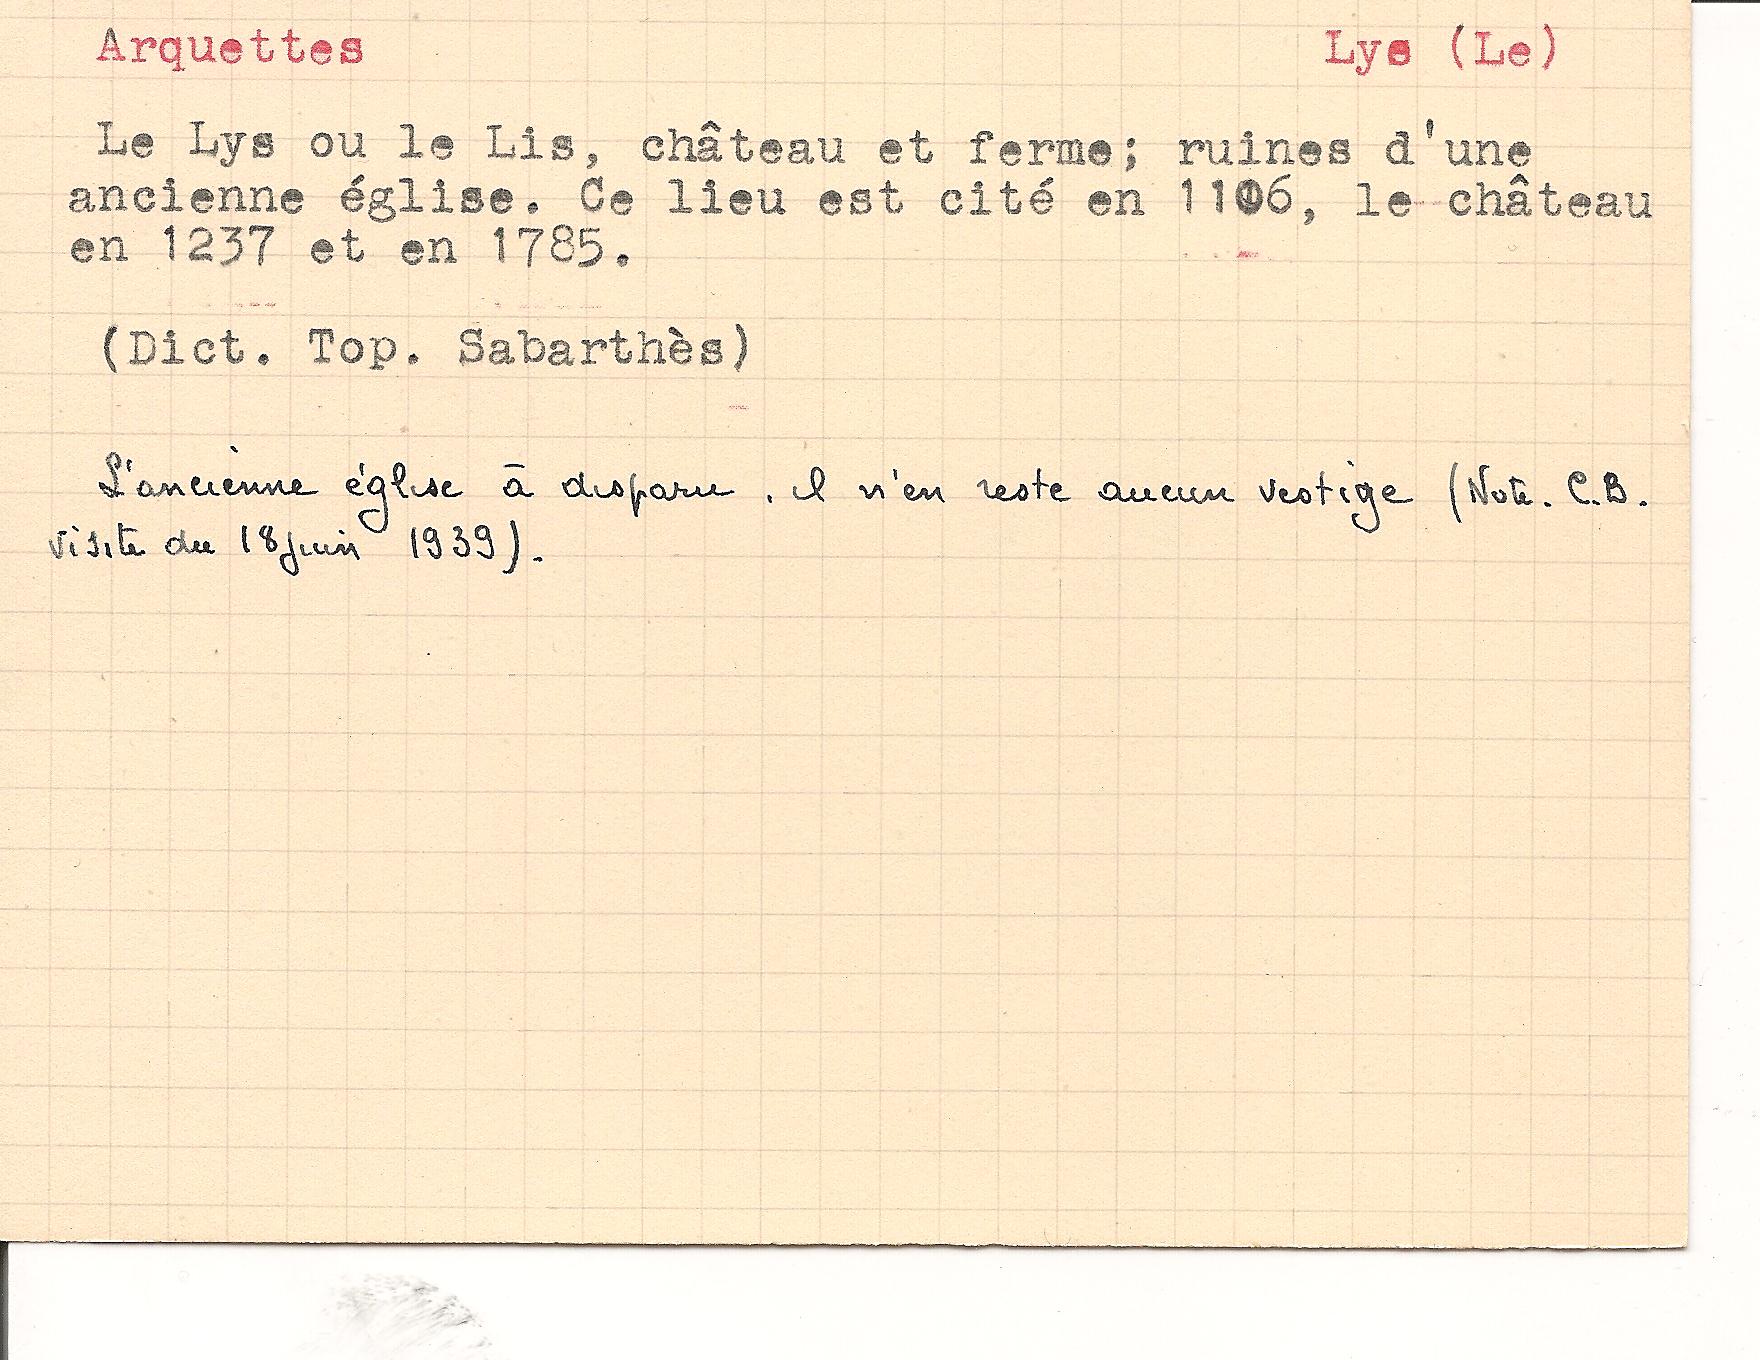 Arquettes Lys (Le)
Le Lys ou le Lis, château et ferme; ruines d'une
ancienne église. Ce lieu est cité en 1106, le château
en 1237 et en 1785.
(Dict. Top. Sabarthès)
L'ancienne église à disparu, il n'en reste aucun vestige (Note. C.B.
visite du 18 juin 1939).